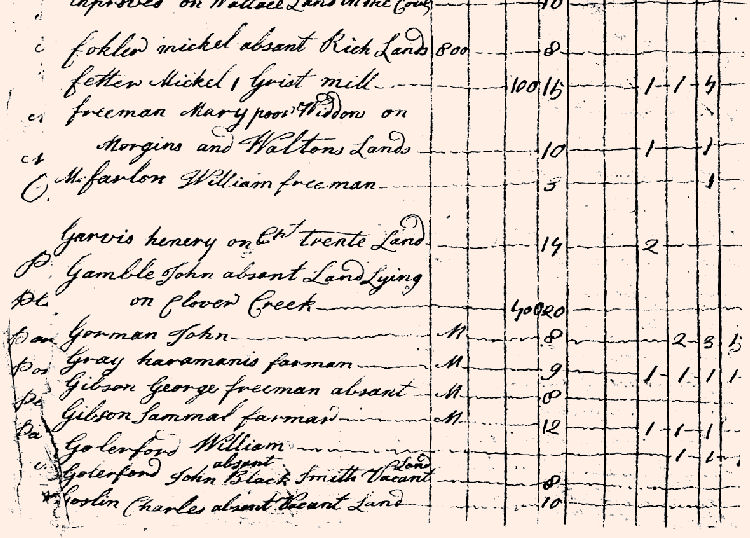 improved on Wallace Land in the Cove 10
c fokler michel absant Rich Lands 800 8
fetter Michel 1 Grist mill 100 15 1 1 4
cr freeman Mary poor Widdow on
cr Morgins and Waltons Lands 10 1 1
C Mcfarlon William freeman 5 1
Garvis henery on trente Land 14 2
P. Gamble John absant Land Lying
Pd on Clover Creek 400 20
Par Gorman John M 8 2 3 15
Pos Gray haramanis farman M 9 1 1 1 1
Pd Gibson George freeman absant M 8
Pa Gibson Sammal farmar M 12 1 1 1
Golerford William 1 1
c Golerford John absant Black Smith Vacant Land 8
Goslin Charles absant Vacant Land 10